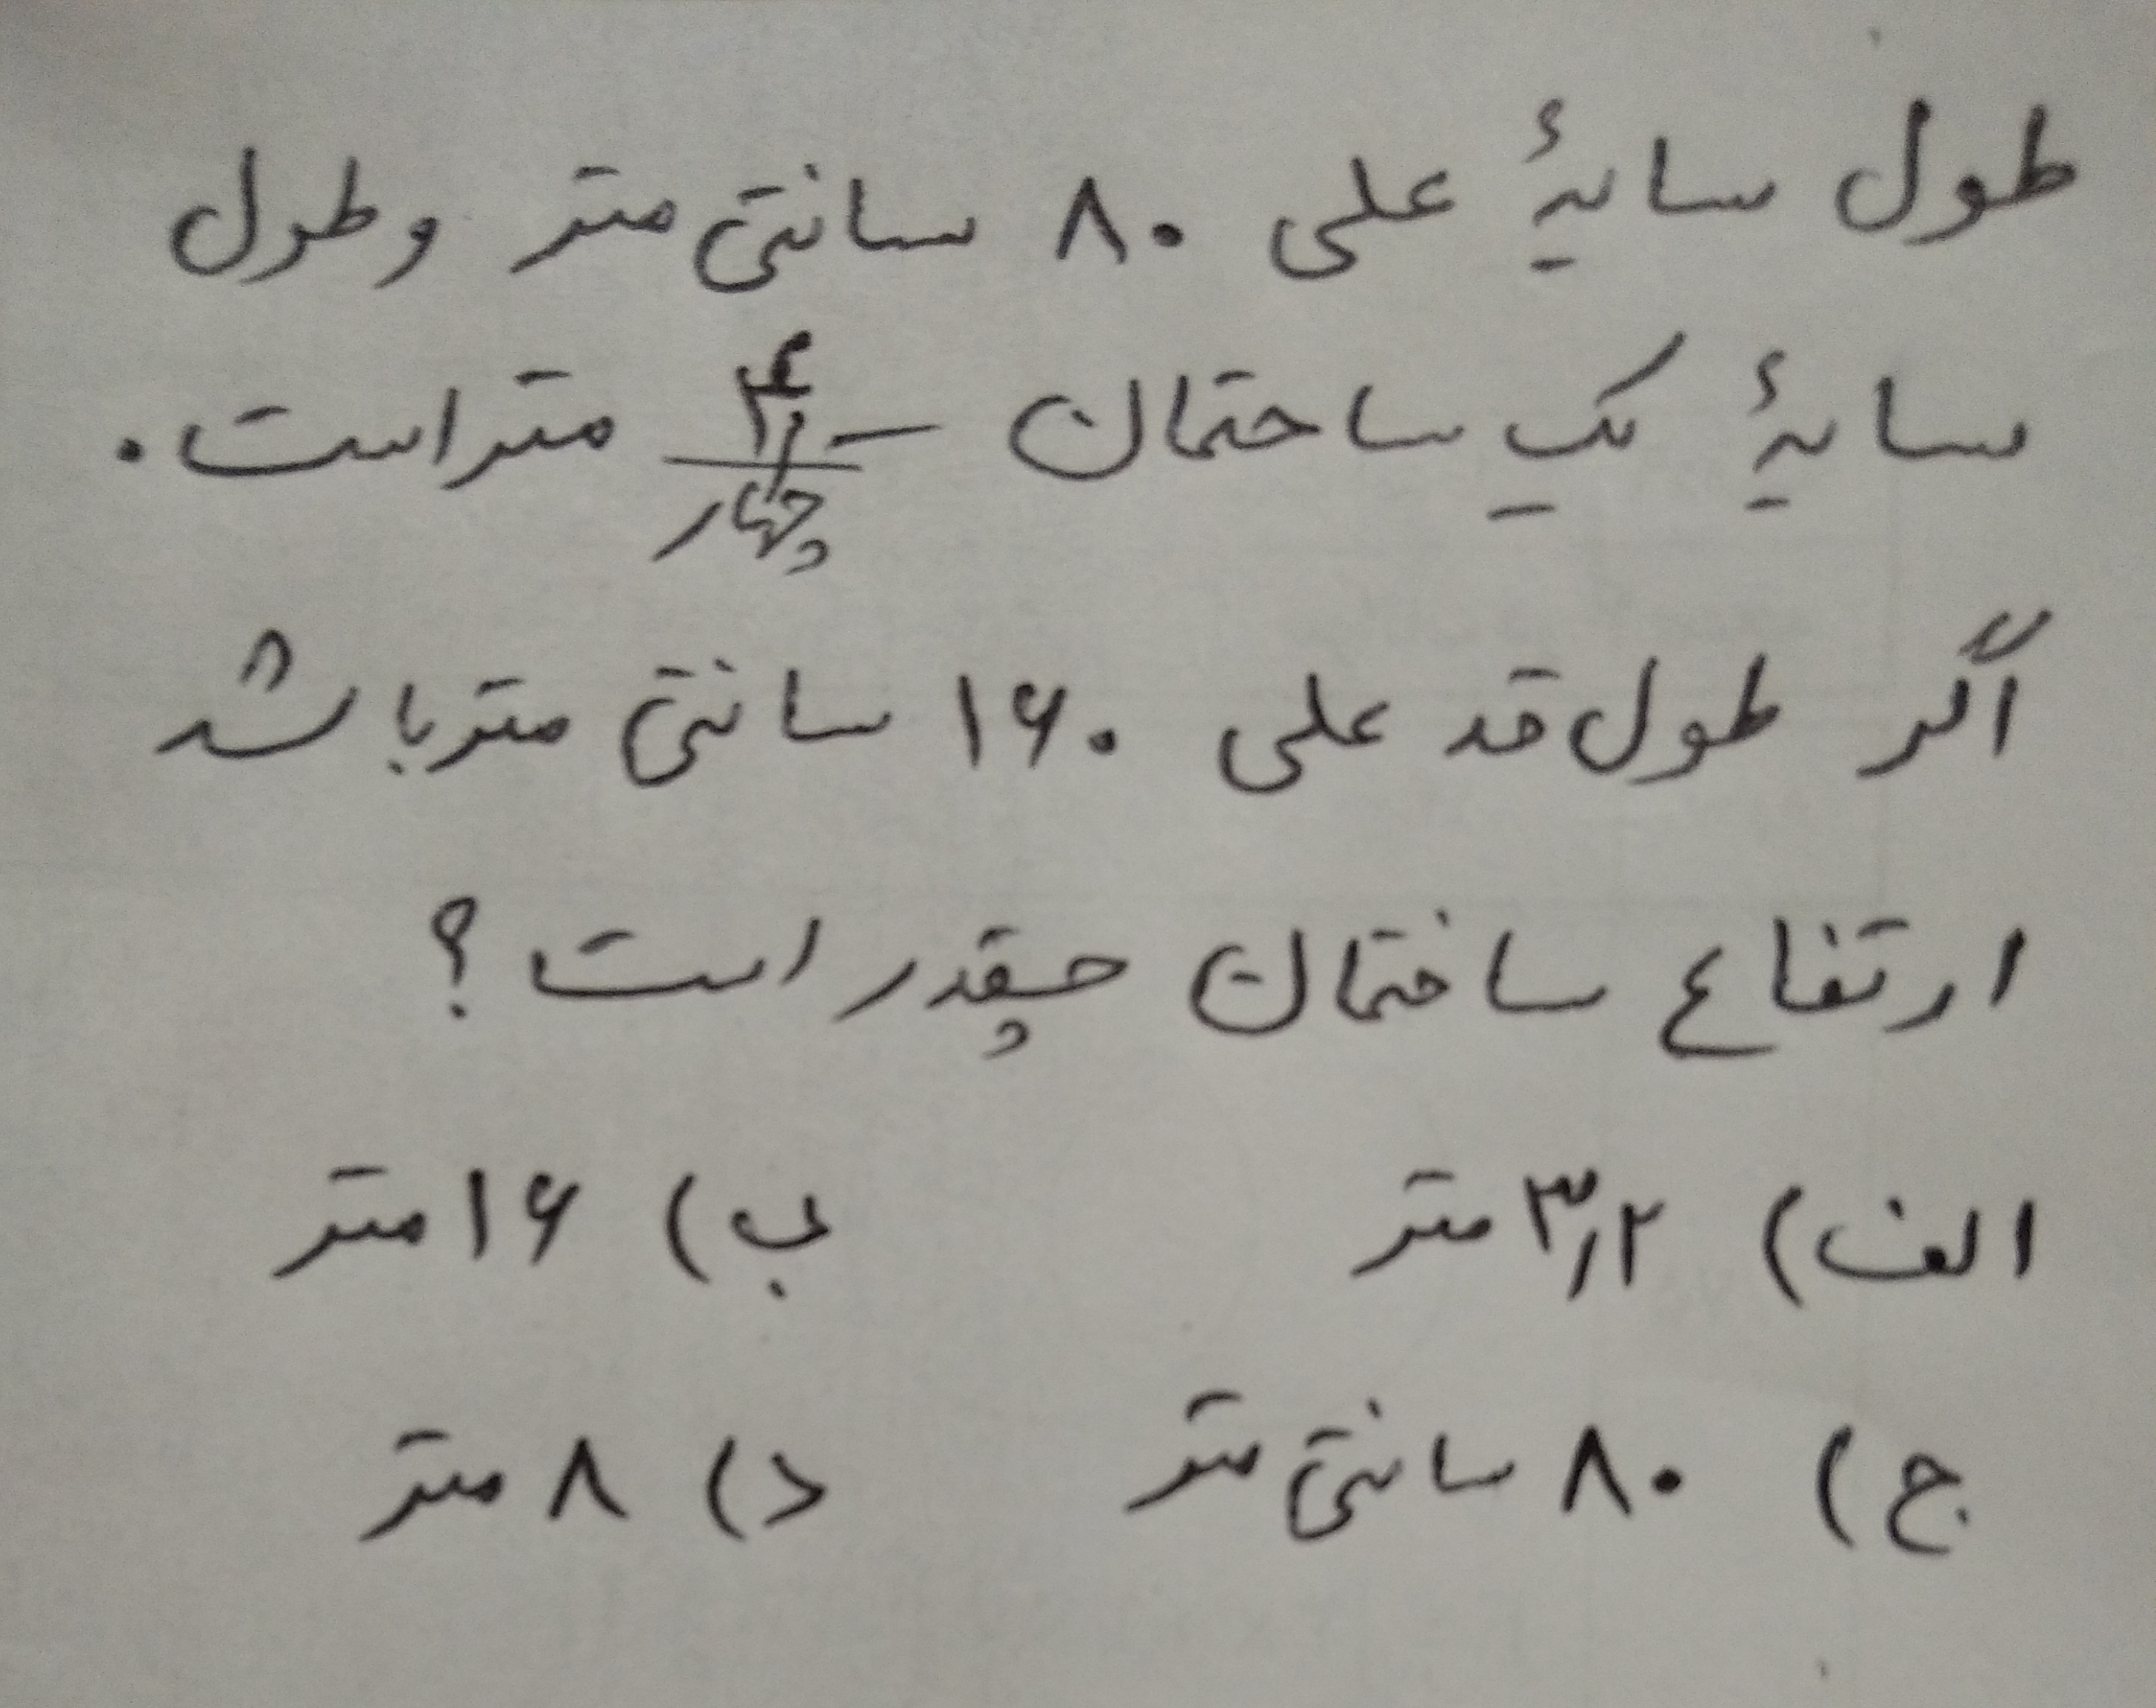 طول سایهٔ علی ۸۰ سانتی متر و طول
سایهٔ یک ساختمان ۴ متر است.
چهار
اگر طول قد علی ۱۶۰ سانتی متر باشد
ارتفاع ساختمان چقدر است؟
الف) ۳٫۲ متر ب) ۱۶ متر
ج) ۸۰ سانتی متر د) ۸ متر